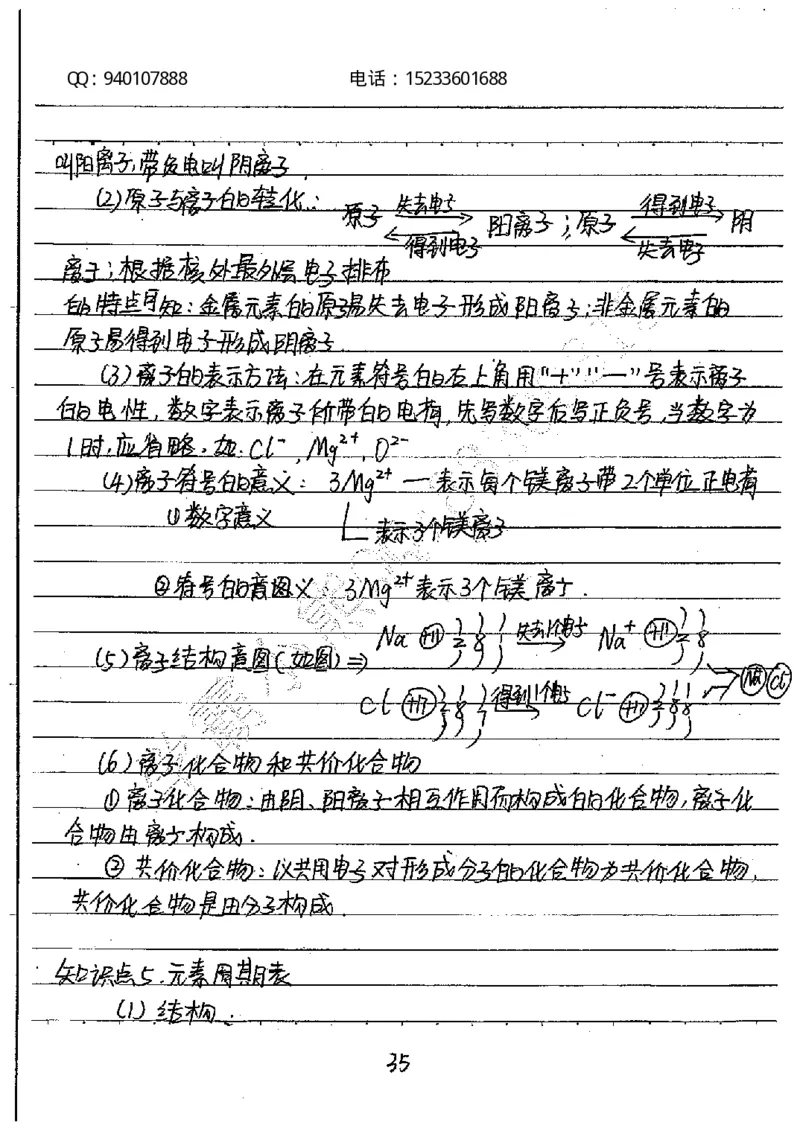 QQ：940107888 电话：15233601688
叫阳离子，带负电叫阴离子.
(2)原子与离子的转化： 原子 失去电子 得到电子 阳离子；原子 得到电子 失去电子 阴
离子；根据核外最外层电子排布
的特点可知：金属元素的原子易失去电子形成阳离子；非金属元素的
原子易得到电子形成阴离子.
(3)离子的表示方法：在元素符号的右上角用"+""—"号表示离子
的电性，数字表示离子所带的电荷，先写数字后写正负号，当数字为
1时，应省略．如．Cl⁻，Mg²⁺，O²⁻
(4)离子符号的意义： 3Mg²⁺ — 表示每个镁离子带2个单位正电荷
①数字意义 表示3个镁离子
②符号的意图义：3Mg²⁺表示3个镁离子.
(5)离子结构意图(如图)⇒ Na +11 2 8 1 失去1个电子 Na⁺ +11 2 8
Cl +17 2 8 7 得到1个电子 Cl⁻ +17 2 8 8 Na Cl
(6)离子化合物和共价化合物
①离子化合物：由阴、阳离子相互作用而构成的化合物，离子化
合物由离子构成.
②共价化合物：以共用电子对形成分子的化合物为共价化合物，
共价化合物是由分子构成.
知识点5.元素周期表
(1)结构.
35